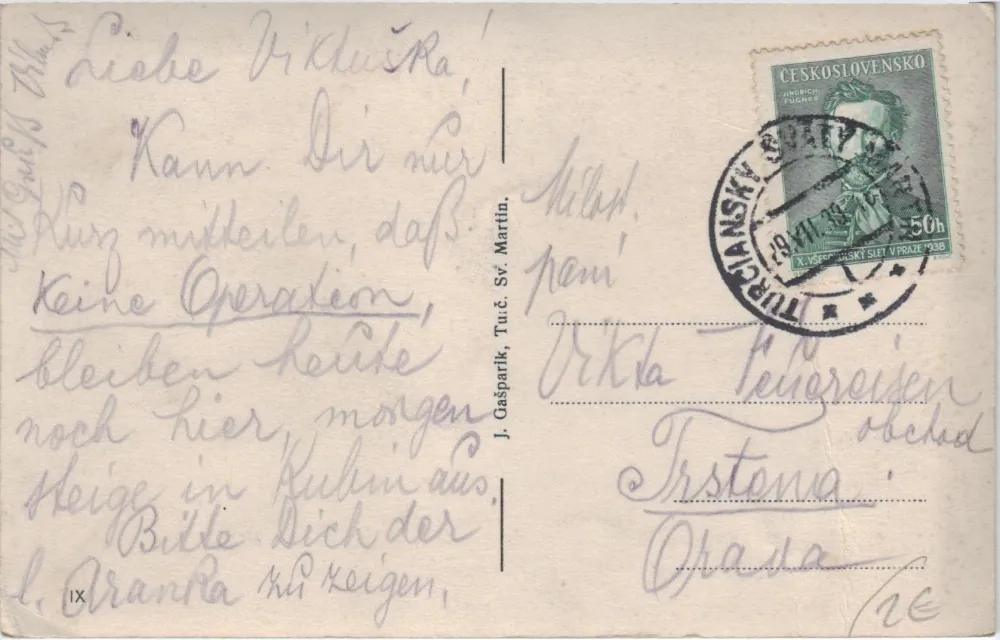 Liebe Viktuška!
Kann Dir nur
Kurz mitteilen, daß
Keine Operation,
bleiben heute
noch hier, morgen
steige in Kubin aus.
Bitte Dich der
l. Aranka zu zeigen.
IX
J. Gašparik, Turč. Sv. Martin.
ČESKOSLOVENSKO
JINDŘICH
FÜGNER
50h
X. VŠESOKOLSKÝ SLET V PRAZE 1938
TURČIANSKY SVÄTÝ MARTIN
Milost.
pani
Vikta Feuereisen
obchod
Trstena
Orava
2€